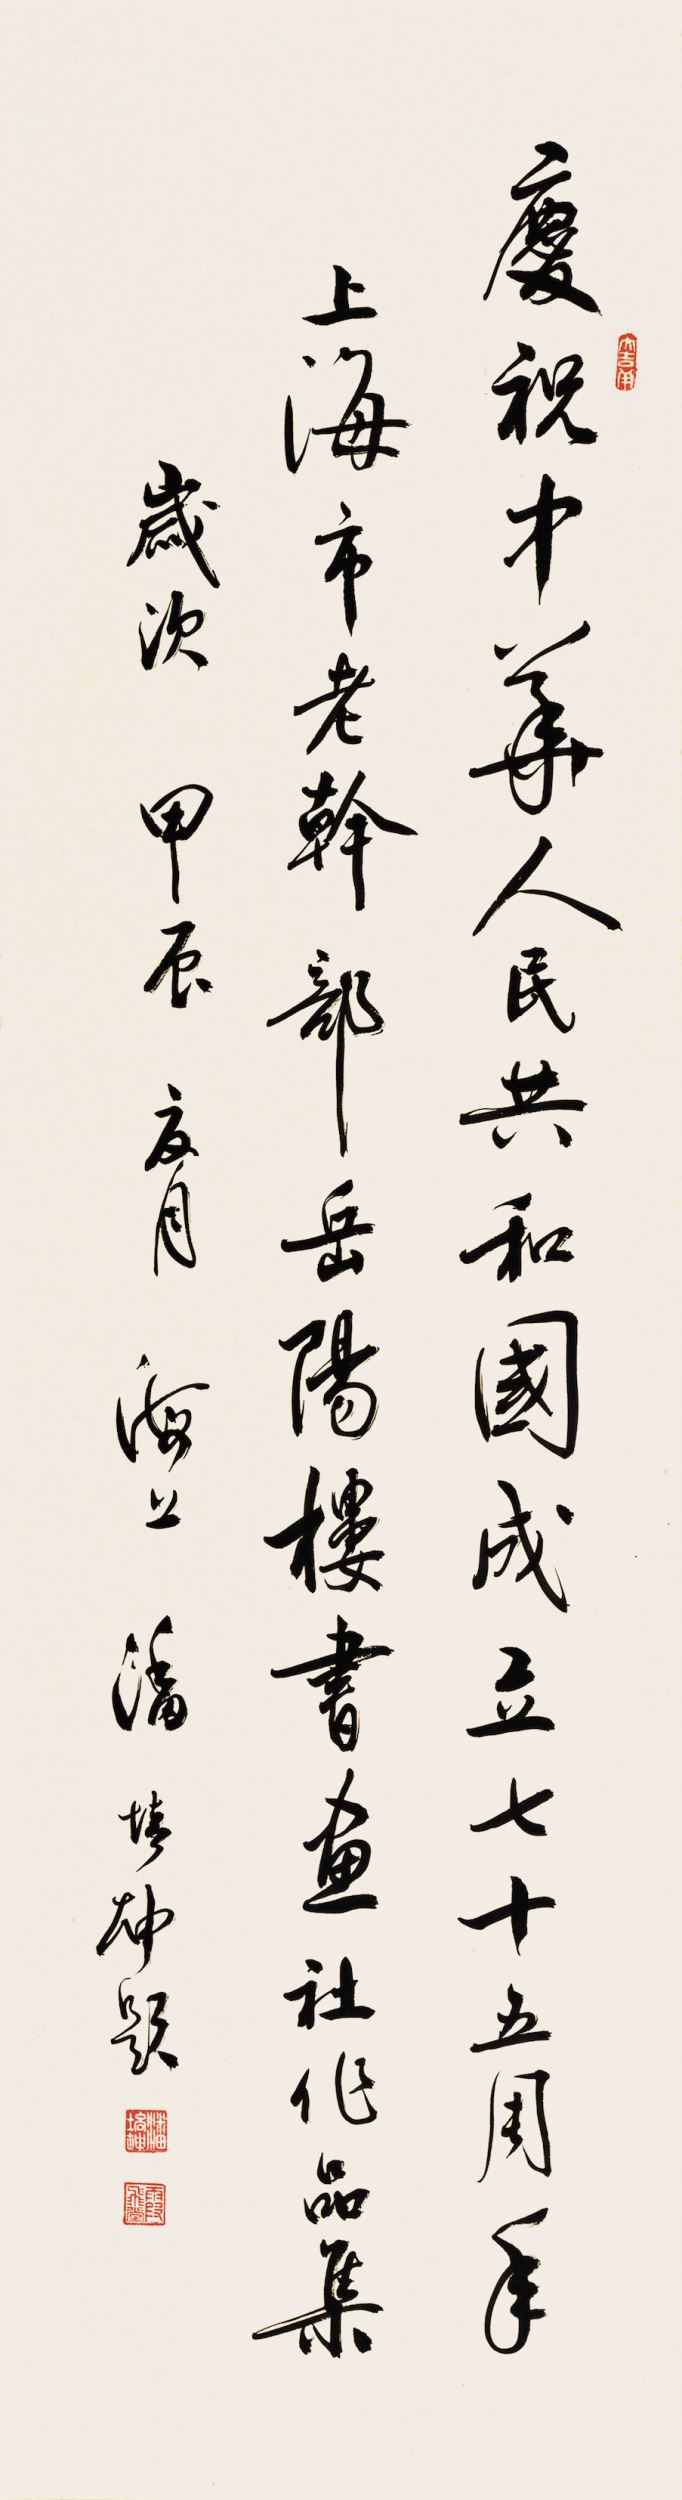 慶祝中華人民共和國成立七十五周年
上海市老幹部岳陽樓書画社作品集
歲次 甲辰 夏月 海上 潘培坤題